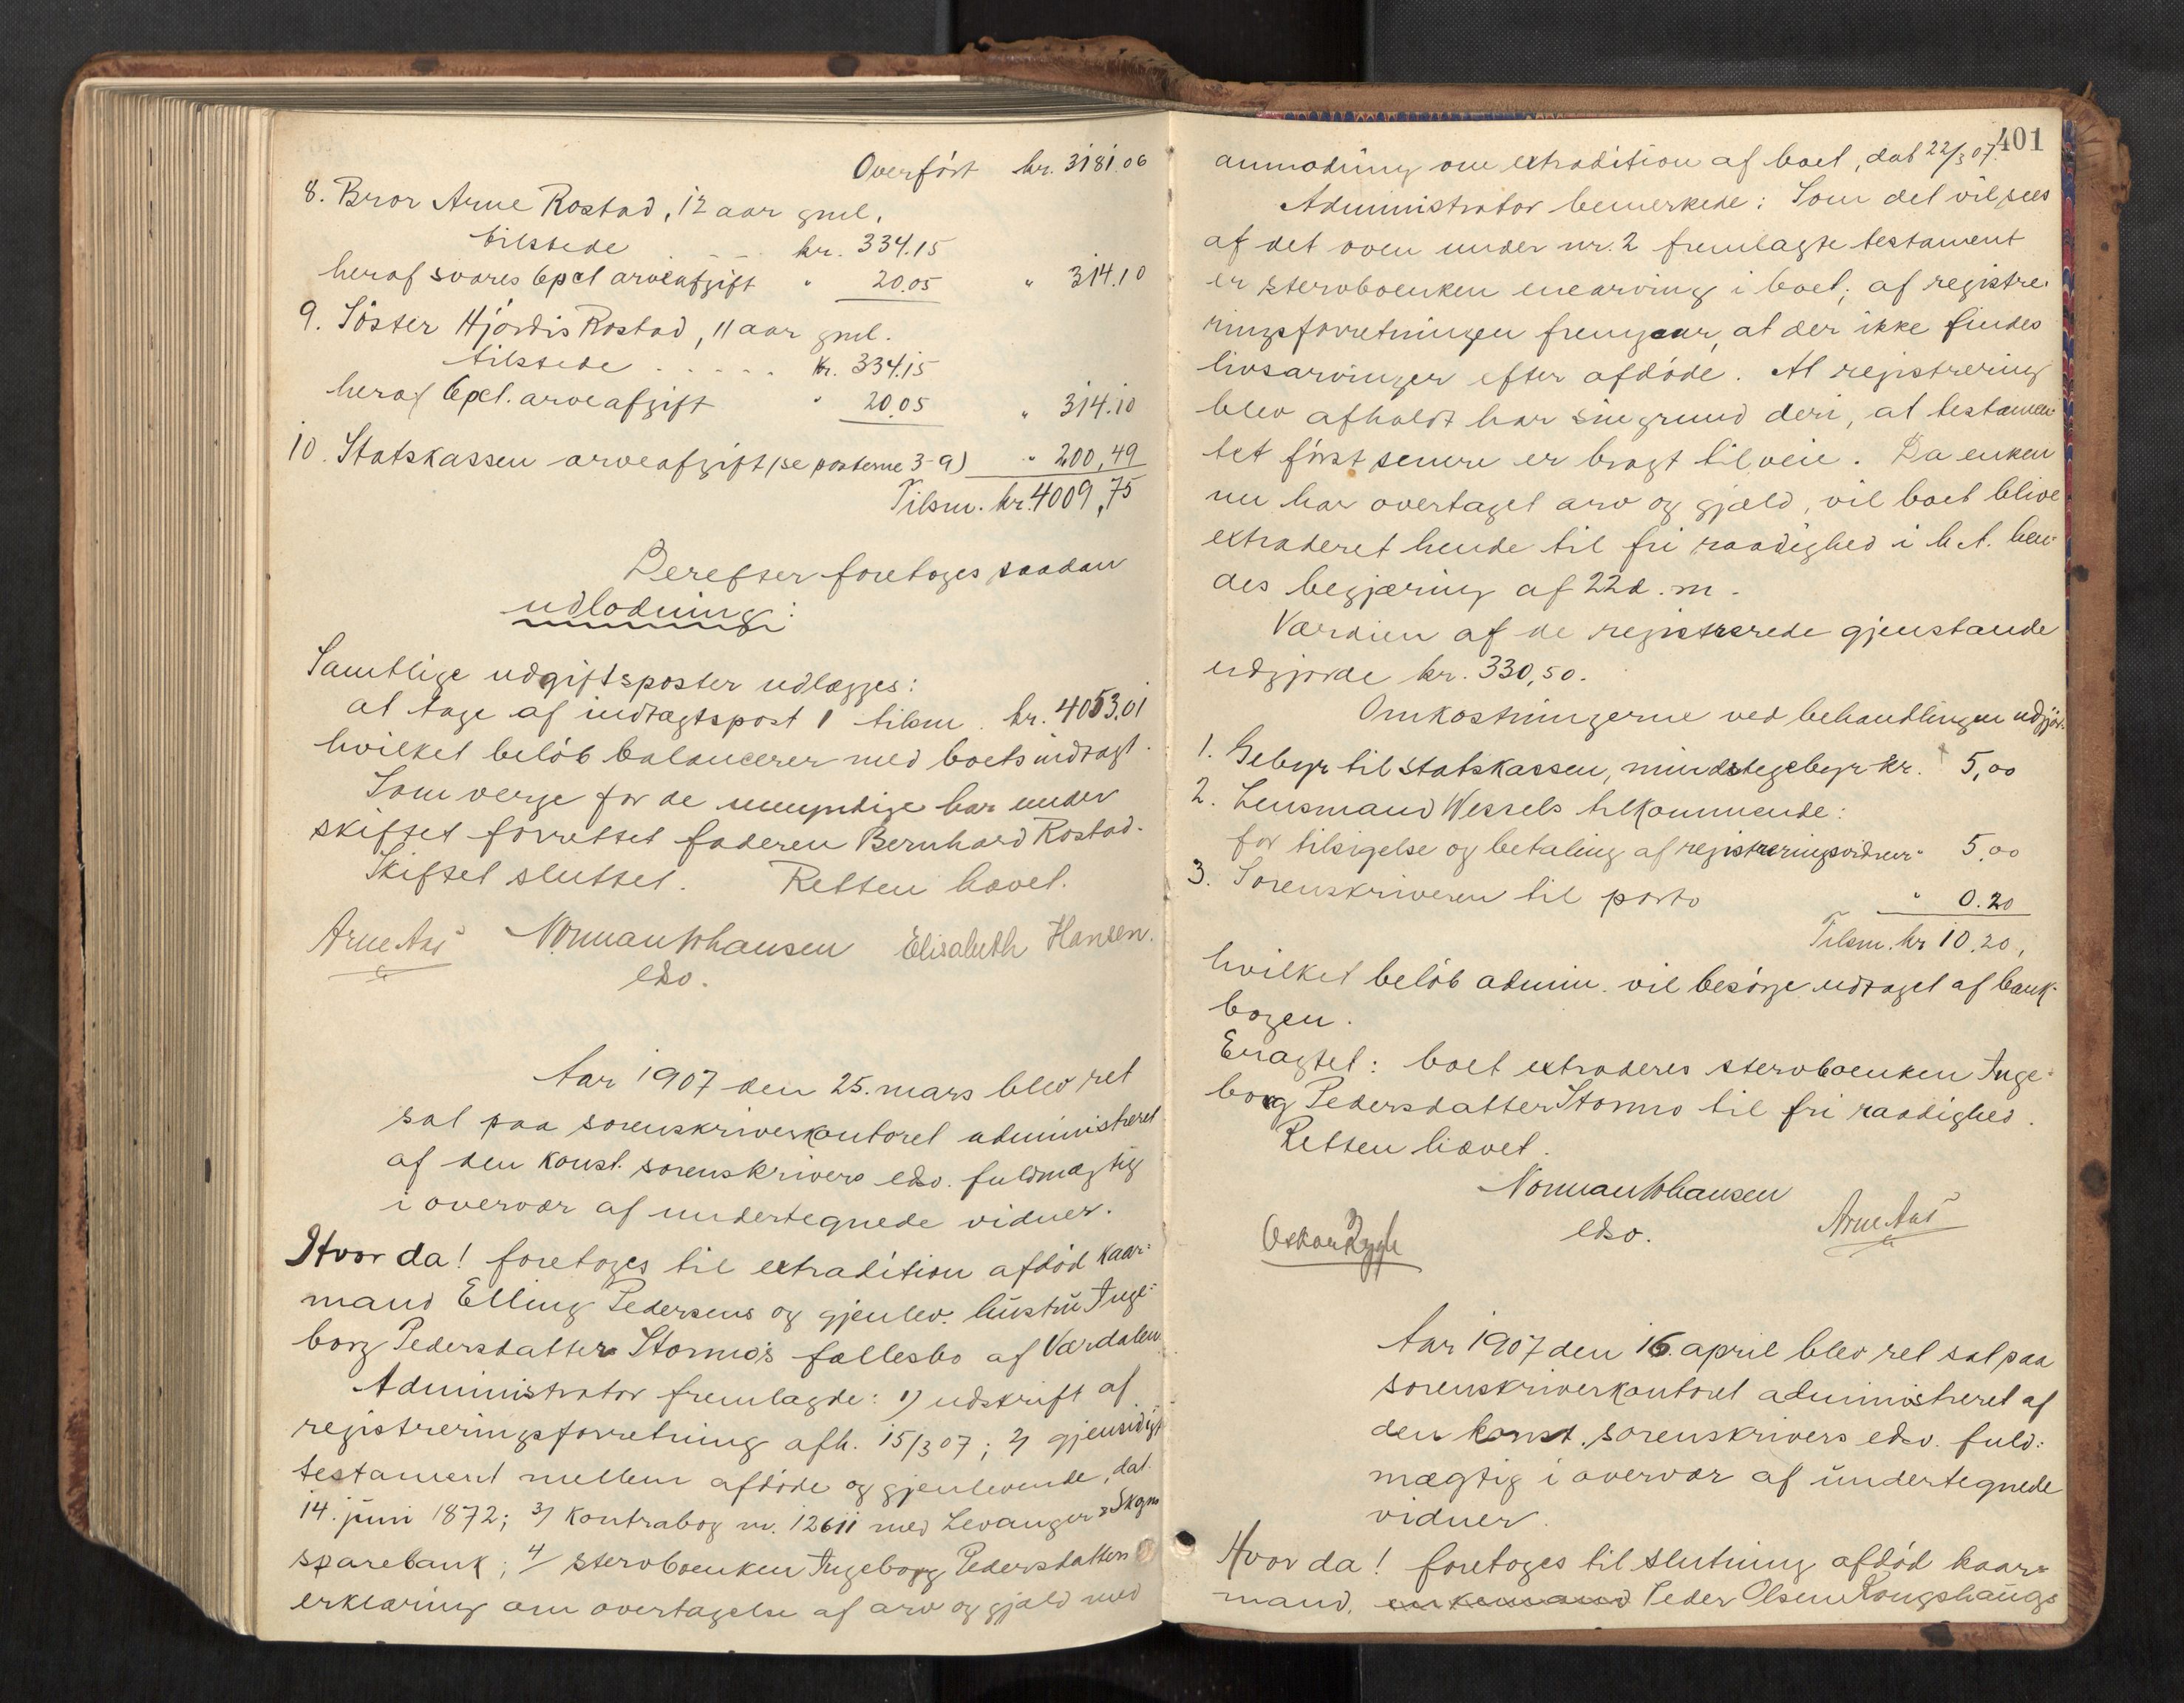 Overført kr. 3181.06
8. Bror Arne Rostad, 12 aar gml.
tilstede . . . . kr. 334.15
heraf svares 6 pct arveafgift " 20.05 " 314.10
9. Søster Hjørdis Rostad, 11 aar gml.
tilstede . . . . . kr. 334.15
heraf 6 pct. arveafgift " 20.05 " 314.10
10. Statskassen arveafgift (se posterne 3-9) " 200,49
Tilsm. kr. 4009,75
Derefter foretoges saadan
udlodning:
Samtlige udgiftsposter udlægges:
at tage af indtægtspost 1 tilsm. kr. 4053.01
hvilket beløb balancerer med boets indtægt.
Som verge for de umyndige har under
skiftet forrettet faderen Bernhard Rostad.
Skiftet sluttet. Retten hævet.
Arne Aas Normann Johansen Elisabeth Hansen.
edsv.
Aar 1907 den 25. mars blev ret
sat paa sorenskriverkontoret administreret
af den konst. sorenskrivers edsv. fuldmægtig
i overvær af undertegnede vidner.
Hvor da! foretoges til extradition afdød kaar=
mand Elling Pedersens og gjenlev. hustru Inge=
borg Pedersdatter Stormo's fællesbo af Værdalen
Administrator fremlagde: 1) udskrift af
registreringsforretning afh. 15/3 07; 2) gjensidigt
testament mellem afdøde og gjenlevende, dat.
14. juni 1872; 3) Kontrabog nr. 12611 med Levanger & Skogns
sparebank; 4/ stervboenken Ingeborg Pedersdatters
erklæring om overtagelse af arv og gjæld med
401
anmodning om extradition af boet, dat 22/3 07.
Administrator bemerkede: Som det vil sees
af det oven under nr. 2 fremlagte testament
er stervboenken enearving i boet; af registre-
ringsforretningen fremgaar, at der ikke findes
livsarvinger efter afdøde. At registrering
blev afholdt har sin grund deri, at testamen-
tet først senere er bragt tilveie. Da enken
nu har overtaget arv og gjæld, vil boet blive
extraderet hende til fri raadighed i h.t. hen-
des begjæring af 22 d.m.
Værdien af de registrerede gjenstande
udgjorde kr. 330,50.
Omkostningerne ved behandlingen udgjør:
1. Gebyr til statskassen, mindstegebyr kr. 5,00
2. Lensmand Wessels tilkommende:
for tilsigelse og betaling af registreringsvidner " 5,00
3. Sorenskriveren til porto " 0.20
Tilsm. kr 10.20,
hvilket beløb admin. vil besørge udtaget af bank-
bogen.
Eragtet: boet extraderes stervboenken Inge=
borg Pedersdatter Stormo til fri raadighed.
Retten hævet.
Normann Johansen
edsv.
Arne Aas
Oskar Rygh
Aar 1907 den 16. april blev ret sat paa
sorenskriverkontoret administreret af
den konst. sorenskrivers edsv. fuld=
mægtig i overvær af undertegnede
vidner.
Hvor da! foretoges til slutning afdød kaar=
mand, enkemand Peder Olsen Kongshaugs